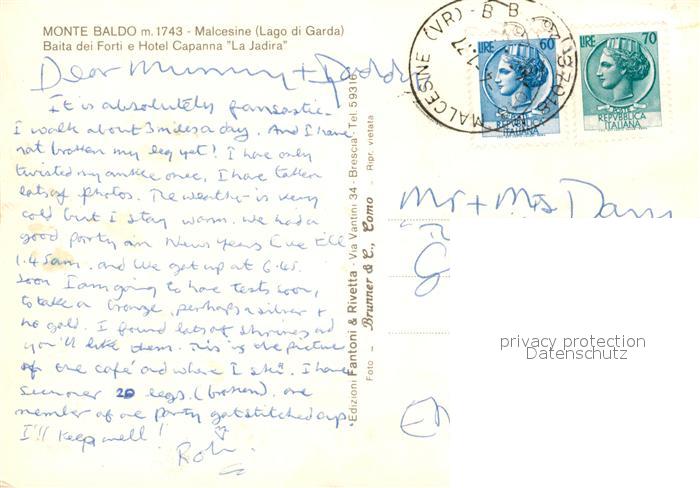 MONTE BALDO m. 1743 - Malcesine (Lago di Garda)
Baita dei Forti e Hotel Capanna "La Jadira"
Dear Mummy + Daddy
It is absolutely fantastic.
I walk about 3 miles a day. And I have
not broken my leg yet! I have only
twisted my ankle once. I have taken
lots of photos. The weather is very
cold but I stay warm. We had a
good party on New Years Eve till
1.45am. and we get up at 6.45.
Soon I am going to have tests soon,
to take a bronze, perhaps a silver +
no gold. I found lots of shrines and
you'll like them. This is the picture
of the café and where I ski. I have
seen over 20 legs. (broken). one
member of our party got stitched up.
I'll keep well!
Rob
Edizioni Fantoni & Rivetta - Via Vantini 34 - Brescia - Tel 59316
Foto - Brunner & C., Como - Ripr. vietata
MALCESINE (VR) - B B
37018
LIRE 60
REPVBBLICA
ITALIANA
LIRE 70
REPVBBLICA
ITALIANA
Mr + Mrs
privacy protection
Datenschutz